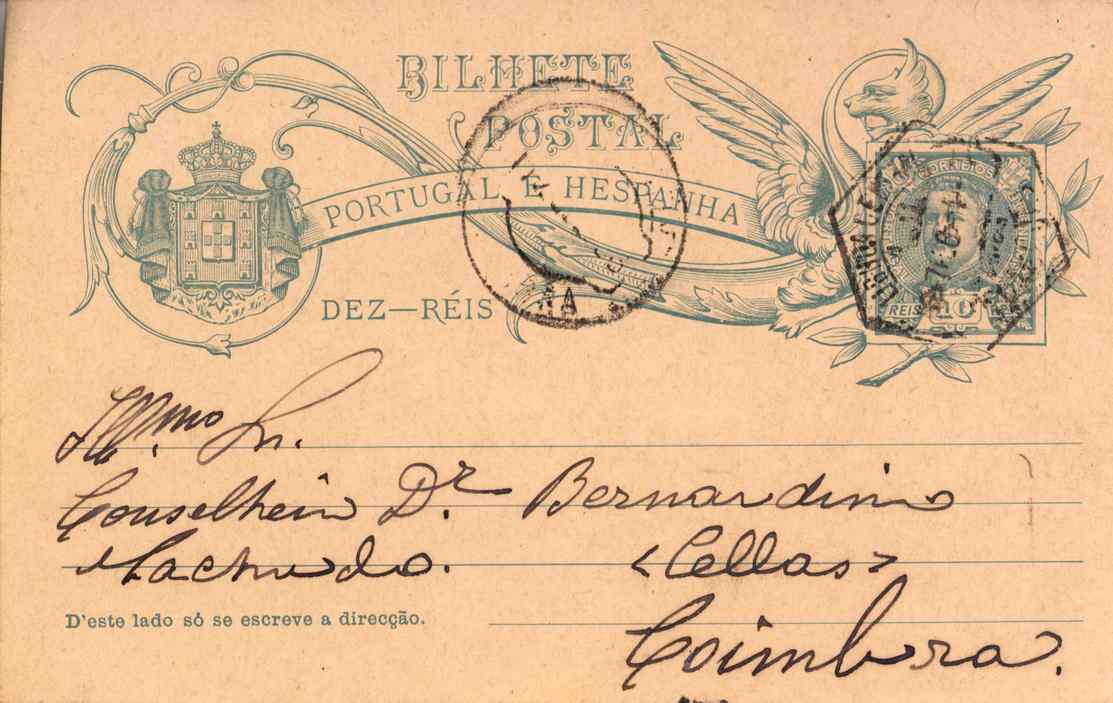 BILHETE
POSTAL
PORTUGAL E HESPANHA
DEZ—RÉIS
CORREIOS
REIS 10
Ill.mo Sr.
Conselheiro Dr. Bernardino
Machado. <Cellas>
D'este lado só se escreve a direcção.
Coimbra.